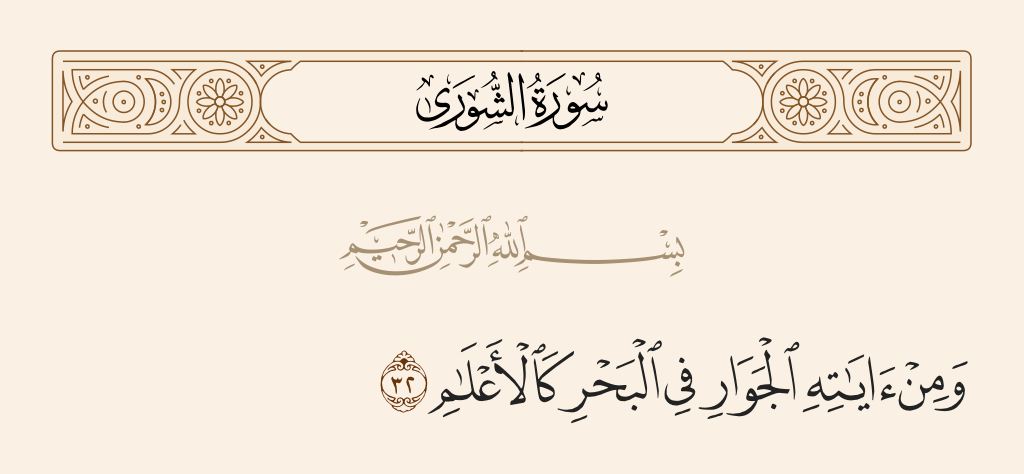 سُورَةُ الشُّورَىٰ
بِسْمِ ٱللَّهِ ٱلرَّحْمَٰنِ ٱلرَّحِيمِ
وَمِنْ ءَايَـٰتِهِ ٱلْجَوَارِ فِى ٱلْبَحْرِ كَٱلْأَعْلَـٰمِ ٣٢